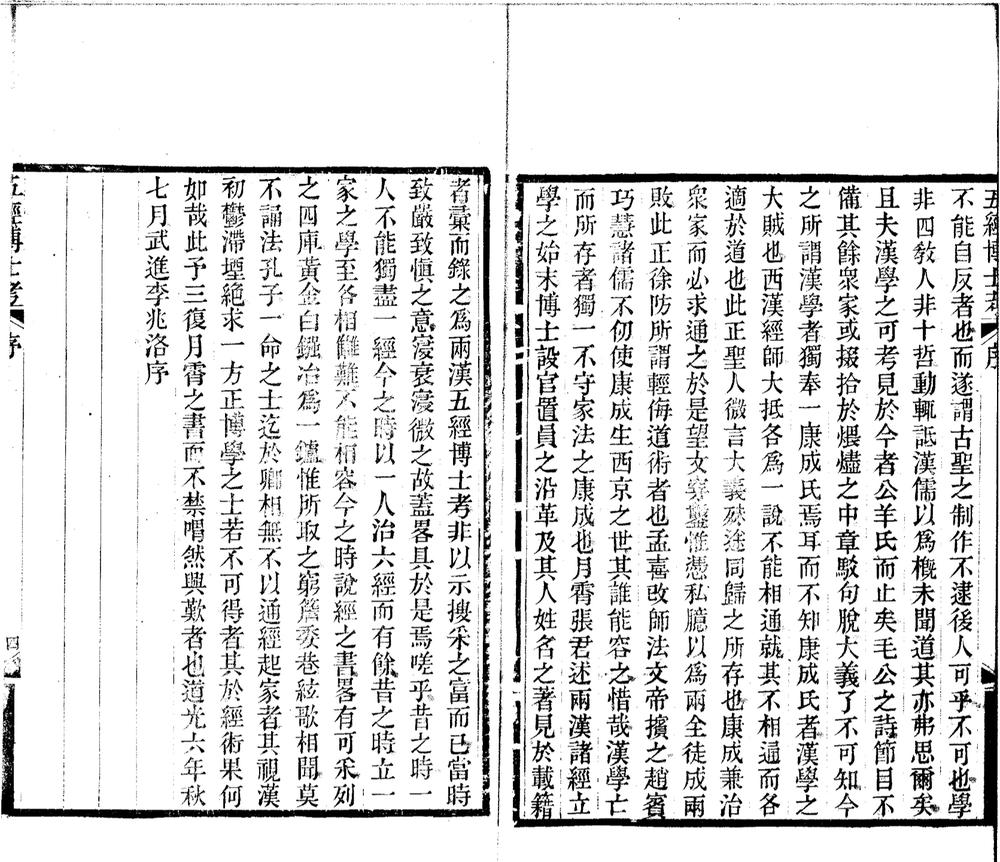 五經博士考 序
不能自反者也而遂謂古聖之制作不逮後人可乎不可也學
非四敎人非十哲動輒詆漢儒以爲槪未聞道其亦弗思爾矣
且夫漢學之可考見於今者公羊氏而止矣毛公之詩節目不
備其餘衆家或掇拾於煨燼之中章駁句脫大義了不可知今
之所謂漢學者獨奉一康成氏焉耳而不知康成氏者漢學之
大賊也西漢經師大抵各爲一說不能相通就其不相通而各
適於道也此正聖人微言大義殊途同歸之所存也康成兼治
衆家而必求通之於是望文穿鑿惟憑私臆以爲兩全徒成兩
敗此正徐防所謂輕侮道術者也孟喜改師法文帝擯之趙賓
巧慧諸儒不仞使康成生西京之世其誰能容之惜哉漢學亡
而所存者獨一不守家法之康成也月霄張君述兩漢諸經立
學之始末博士設官置員之沿革及其人姓名之著見於載籍
者彙而錄之爲兩漢五經博士考非以示搜采之富而已當時
致嚴致愼之意寖衰寖微之故蓋畧具於是焉嗟乎昔之時一
人不能獨盡一經今之時以一人治六經而有餘昔之時立一
家之學至各相讎難不能相容今之時說經之書畧有可采列
之四庫黃金白鏹冶爲一鑪惟所取之窮簷委巷絃歌相聞莫
不誦法孔子一命之士迄於卿相無不以通經起家者其視漢
初鬱滯堙絕求一方正博學之士若不可得者其於經術果何
如哉此予三復月霄之書而不禁喟然興歎者也道光六年秋
七月武進李兆洛序
五經博士考 序 四